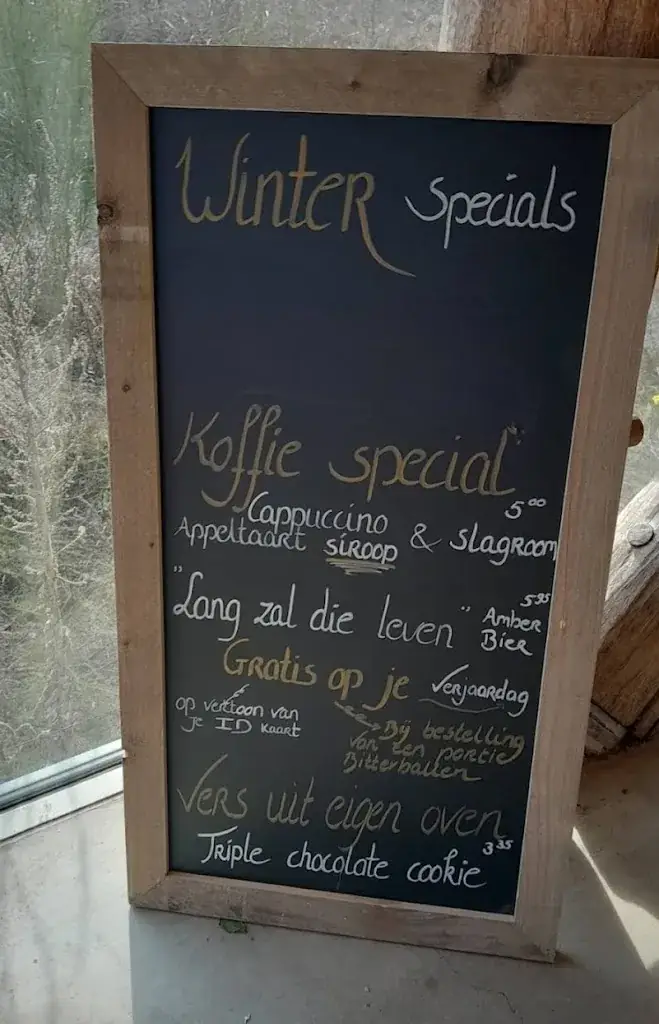 Winter specials
Koffie special"
5⁰⁰
Cappuccino
Appeltaart siroop & slagroom
"Lang zal die leven" Amber Bier 5³⁵
Gratis op je verjaardag
op vertoon van
je ID kaart
Bij bestelling
van een portie
Bitterballen
Vers uit eigen oven
Triple chocolate cookie 3³⁵